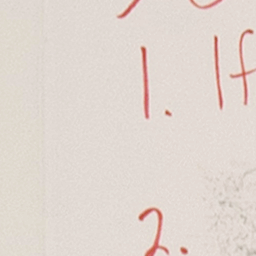 1. If
2.